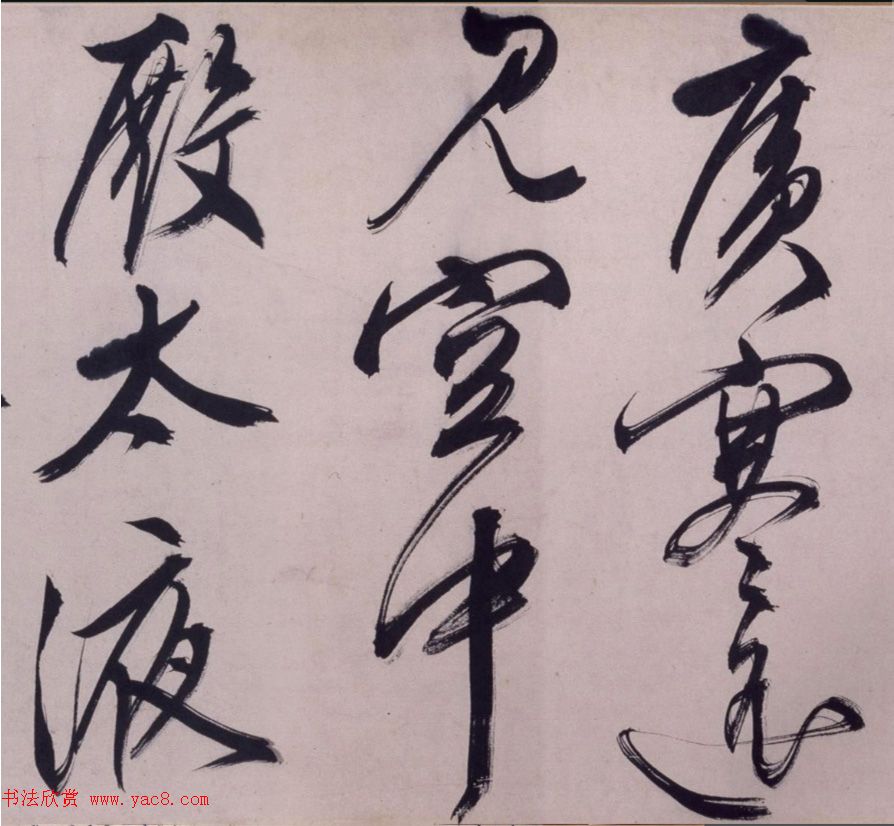 廣寒遥
見空中
殿太液
书法欣赏 www.yac8.com